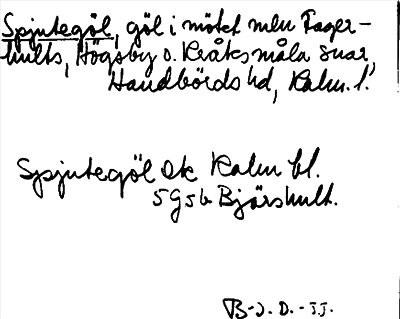 Spjutegöl, göl i mötet mln Fager-
hults, Högsby o. Kråksmåla snar,
Handbörds hd, Kalm. l.
Spjutegöl Ek Kalm bl.
5 G 5 b Bjärshult.
B-J. D. - JJ.